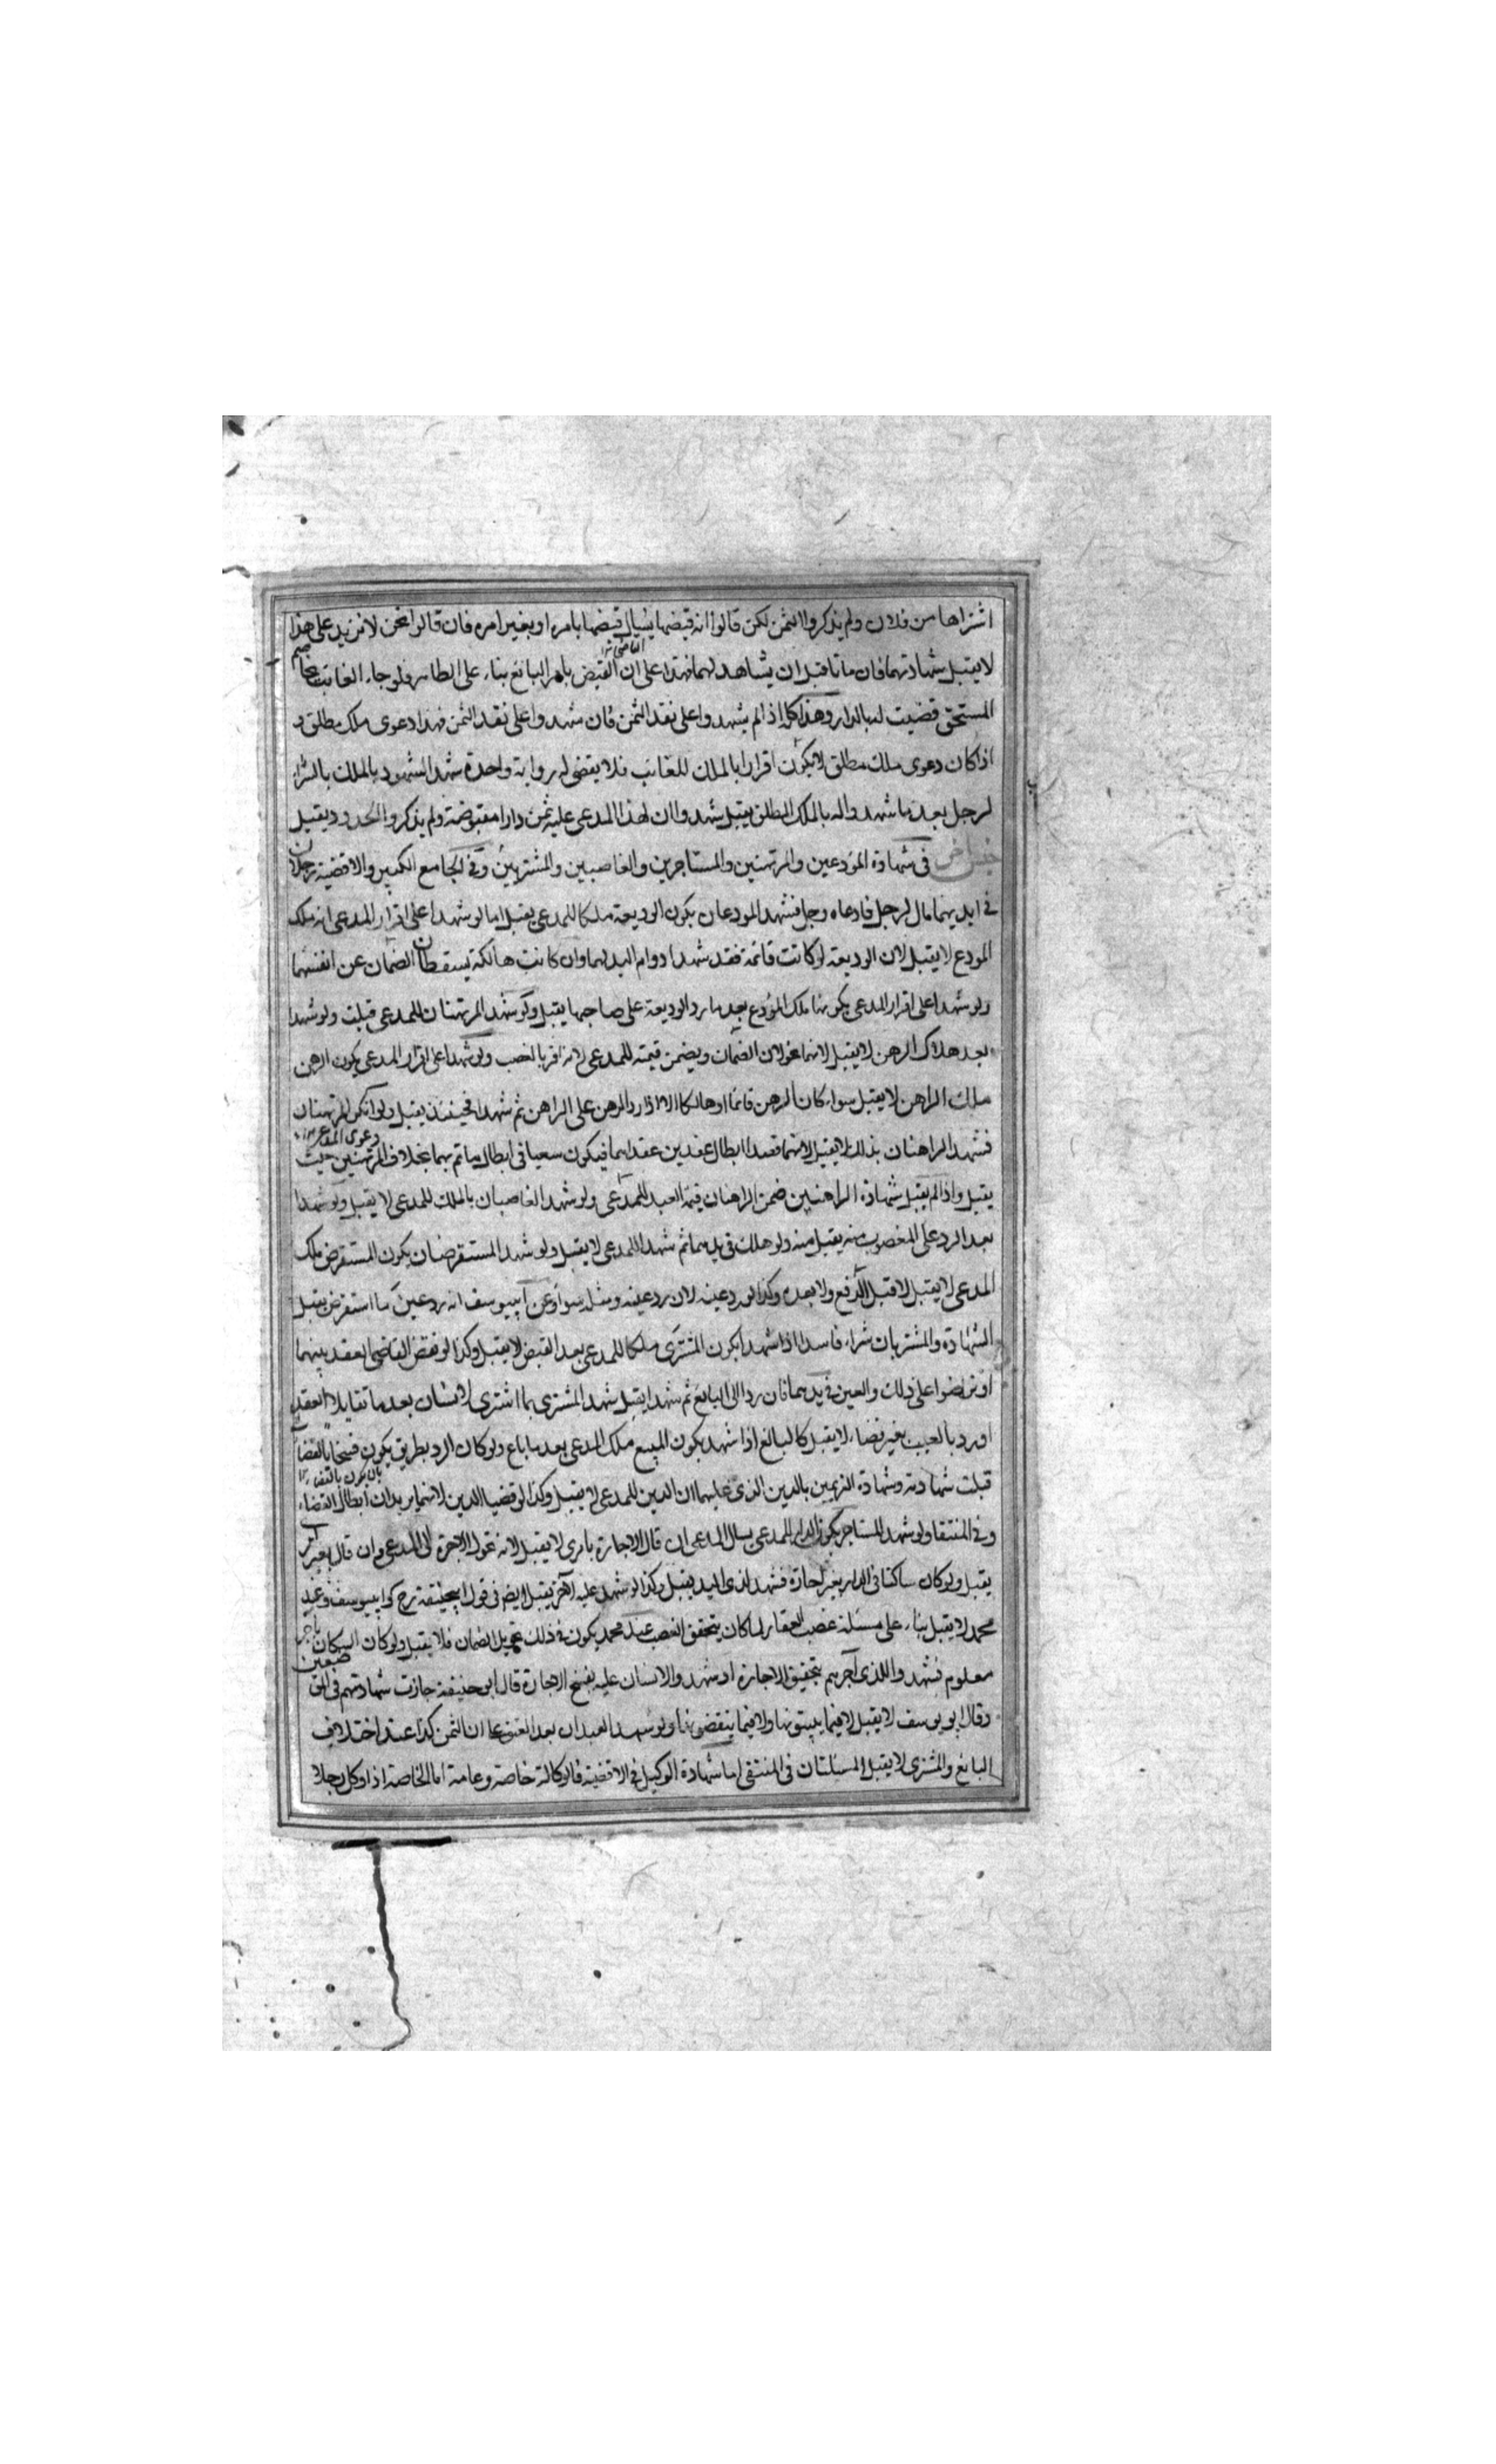 اشتراها من فلان ولم يذكروا الثمن لكن قالوا انه قبضها يسال قبضها بامره او بغير امره فان قالوا نحن لا نزيد على هذا
لا يقبل شهادتهما فان ماتا قبل ان يشاهد لهما فهذا على ان القبض بامر البائع بناء على الظاهر فلو جاء الغائب
المستحق قضيت له بالدار وهذا كله اذا لم يشهدوا على نقد الثمن فان شهدوا على نقد الثمن فهذا دعوى ملك مطلق و
اذا كان دعوى ملك مطلق لا يكون اقرارا بالملك للغائب فلا يقضى له رواية واحدة شهد الشهود بالملك بالشراء
لرجل بعد ما شهدوا له بالملك المطلق يقبل شهدوا ان لهذا المدعى عليه ثمن دار مقبوضة ولم يذكروا الحدود يقبل
في شهادة المودعين والمرتهنين والمستاجرين والغاصبين والمشتريين وفي الجامع الكبير والاقضية رجلان
في ايديهما مال لرجل فادعاه رجل فشهد المودعان بكون الوديعة ملكا للمدعي يقبل اما لو شهدا على اقرار المدعي انه ملك
المودع لا يقبل لان الوديعة لو كانت قائمة فقد شهدا دوام اليد لهما وان كانت هالكة يسقطان الضمان عن انفسهما
ولو شهدا على اقرار المدعي بكونها ملك المودع بعد ما رد الوديعة على صاحبها يقبل ولو شهد المرتهنان للمدعي قبلت ولو شهدا
بعد هلاك الرهن لا يقبل لانهما يحولان الضمان ويضمن قيمته للمدعي لانه اقر بالغصب ولو شهدا على اقرار المدعي بكون الرهن
ملك الراهن لا يقبل سواء كان الرهن قائما او هالكا الا اذا رد الرهن على الراهن ثم شهدا فحينئذ يقبل ولو انكر المرتهنان
فشهد الراهنان بذلك لا يقبل لانهما قصدا ابطال عقدين عقداهما فيكون سعيا في ابطال ما تم بهما بخلاف المرتهنين حيث
يقبل واذا لم يقبل شهادة الراهنين ضمن الراهنان قيمة العبد للمدعي ولو شهد الغاصبان بالملك للمدعي لا يقبل ولو شهدا
بعد الرد على المغصوب منه يقبل منه ولو هلك في يدهما ثم شهدا للمدعي لا يقبل ولو شهد المستقرضان بكون المستقرض ملك
المدعي لا يقبل لا قبل الدفع ولا بعده وكذا لو رد عينه لان رد عينه ومثله سواء وعن ابي يوسف انه رد عين ما استقرض يقبل
الشهادة والمشتريان شراء فاسدا اذا شهدا بكون المشترى ملكا للمدعي بعد القبض لا يقبل وكذا لو نقض القاضي العقد بينهما
او تراضوا على ذلك والعين في يدهما فان ردا الى البائع ثم شهدا يقبل شهد المشتري بما اشترى لانسان بعد ما تقايلا العقد
او رد بالعيب بغير قضاء لا يقبل كالبائع اذا شهد بكون المبيع ملك المدعي بعد ما باع ولو كان الرد بطريق يكون فسخا بالقضاء
قبلت شهادته وشهادة الغريمين بالدين الذي عليهما ان الدين للمدعي لا يقبل وكذا لو قضيا الدين لانهما يريدان ابطال القضاء
وفي المنتقى ولو شهد المستاجر بكون الدار للمدعي يسال المدعي ان قال الاجارة بامري لا يقبل لانه يحول الاجرة الى المدعي وان قال بغير امري
يقبل ولو كان ساكنا في الدار بغير اجارة فشهد لذي اليد يقبل وكذا لو شهد عليه لآخر يقبل ايضا في قول ابي حنيفة رح كابي يوسف وعند
محمد لا يقبل بناء على مسئلة غصب العقار لما كان يتحقق الغصب عند محمد يكون في ذلك تحويل الضمان فلا يقبل ولو كان السكان باجر
معلوم فشهدوا للذي آجرهم بتحقيق الاجارة او شهدوا لانسان عليه بفسخ الاجارة قال ابو حنيفة جازت شهادتهم في
وقال ابو يوسف لا يقبل لا فيما يثبتونها ولا فيما ينقضونها ولو شهد العبدان بعد العتق على ان الثمن كذا عند اختلاف
البائع والمشتري لا يقبل المسئلتان في المنتقى اما شهادة الوكيل في الاقضية فالوكالة خاصة وعامة اما الخاصة اذا وكل رجلا